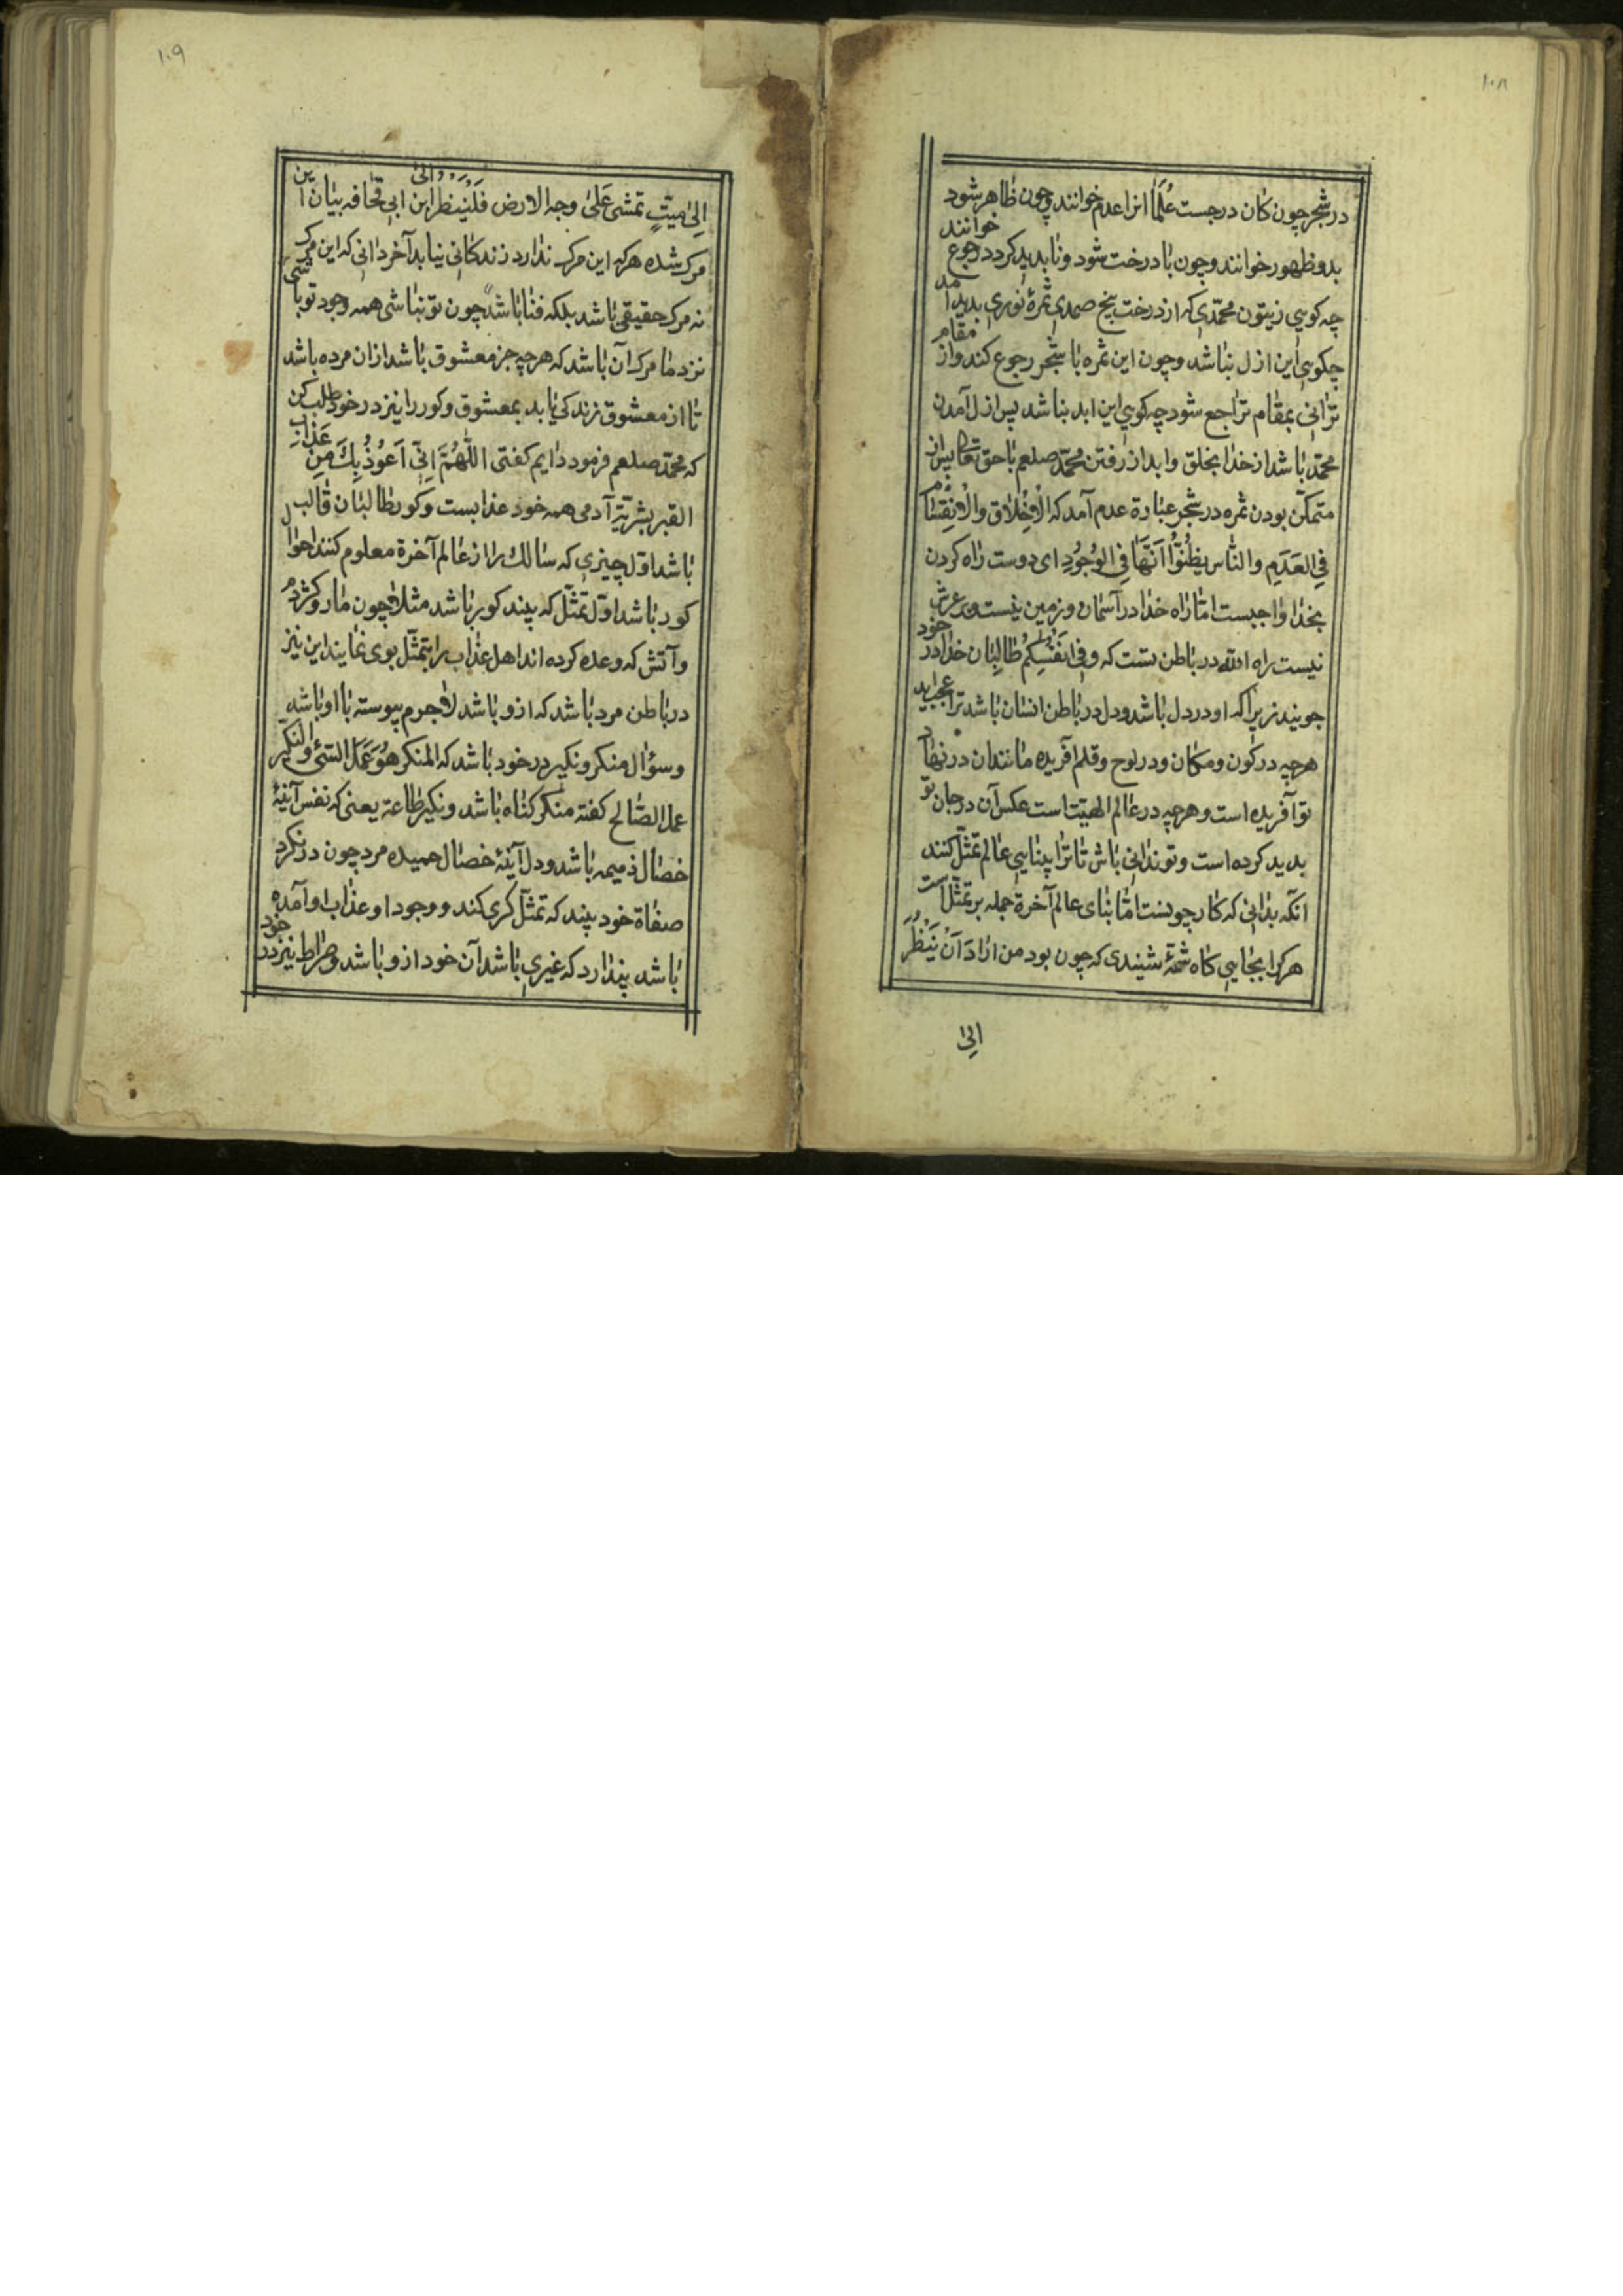 ۱۰۸
در شجر چون کان درجست علما انرا عدم خوانند و چون ظاهر شود
بدو ظهور خوانند و چون با درخت شود و نا بدید کردد رجوع خوانند
چه کویی زیتون محمّدی که از درخت بیخ صمدی ثمرهٔ نوری بدید آمد
چکویی این ازل بناشد و چون این ثمره با شجر رجوع کند و از مقام
ترانی بمقام تراجع شود چه کویی این ابد بناشد پس ازل آمدن
محمّد باشد از خدا بخلق و ابد از رفتن محمّد صلعم باحق تعا پس از
متمکّن بودن ثمره در شجر عبارة عدم آمد که الاخلاق والانقسام
فی العدم والناس یظنوا انها فی الوجود ای دوست راه کردن
بخدا واجبست امّا راه خدا در آسمان و زمین نیست در عرش
نیست راه الله در باطن تست که وفی انفسکم طالبان خدا در خود
جویند زیرا که او در دل باشد و دل در باطن انسان باشد ترا عجب اید
هرچه در کون و مکان و در لوح و قلم آفریده مانندان در نهاد
تو آفریده است و هرچه در عالم الهیّت است عکس آن در جان تو
بدید کرده است و تو ندانی باش تا ترا بینایی عالم تمثّل کنند
انکه بدانی که کار چونست امّا بنای عالم آخرة جمله بر تمثّل است
هرکرا بجایی کاه شمّهٔ شنیدی که چون بود من اراد ان ینظر
الی
۱۰۹
الی میّت تمشی علی وجه الارض فلینظر الی ابن ابی قحافه بیان این
مرک شده هرکه این مرک ندارد زندکانی نیابد آخر دانی که این مرک
نه مرک حقیقی باشد بلکه فنا باشد چون تو بناشی همه وجود تو باشی
نزد ما مرک آن باشد که هرچه جز معشوق باشد ازان مرده باشد
تا از معشوق زندکی یابد بمعشوق و کور را نیز در خود طلب کن
که محمّد صلعم فرمود دایم کفتی اللّهمّ انّی اعوذ بک من عذاب
القبر بشریّة آدمی همه خود عذابست و کور طالبان قالب
باشد اوّل چیزی که سالک را از عالم آخرة معلوم کنند احوال
کور باشد اوّل تمثّل که بیند کور باشد مثلا چون مار و کژدم
و آتش که وعده کرده اند اهل عذاب را بتمثّل بوی نمایند این نیز
در باطن مرد باشد که ازو باشد لاجرم پیوسته با او باشد
و سؤال منکر و نکیر در خود باشد که المنکر هو عمل السّیّئ والنکیر
عمل الصّالح کفته منکر کناه باشد و نکیر طاعة یعنی که نفس آینهٔ
خصال ذمیمه باشد و دل آینهٔ خصال حمیده مرد چون درنکرد
صفاة خود بیند که تمثّل کری کند و وجود او عذاب او آمده
باشد پندارد که غیری باشد آن خود ازو باشد و صراط نیز در خود